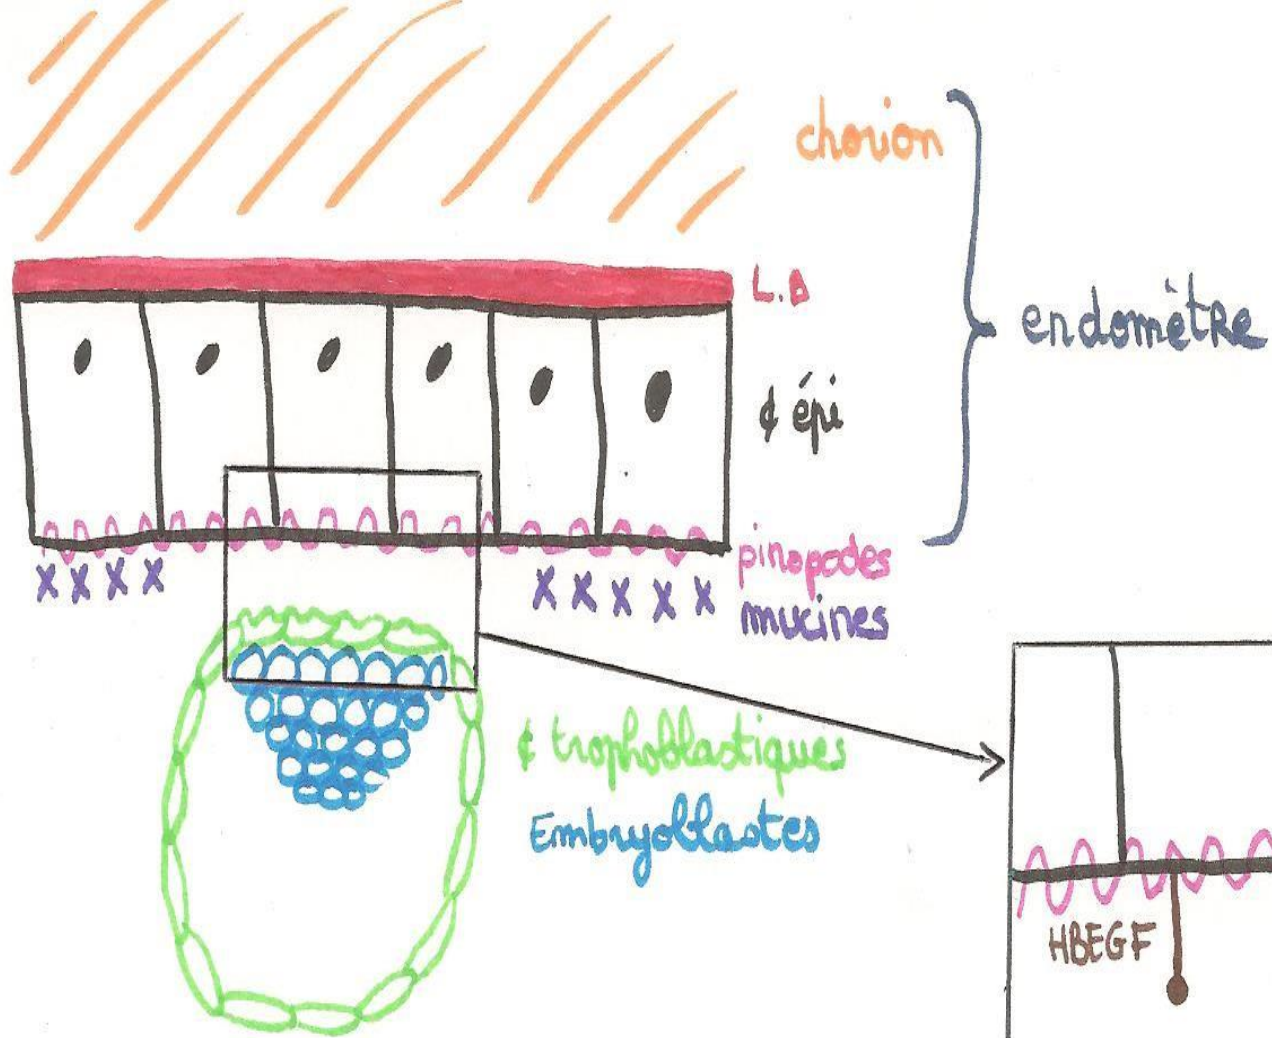 chorion
L.B
endomètre
¢ épi
pinopodes
mucines
¢ trophoblastiques
Embryoblastes
HBEGF